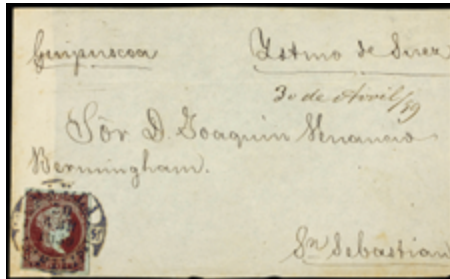 Guipuscoa Istmo de Suez
30 de Avril/59
Sõr D. Joaquin Venancio
Bermingham.
Sn Sebastian